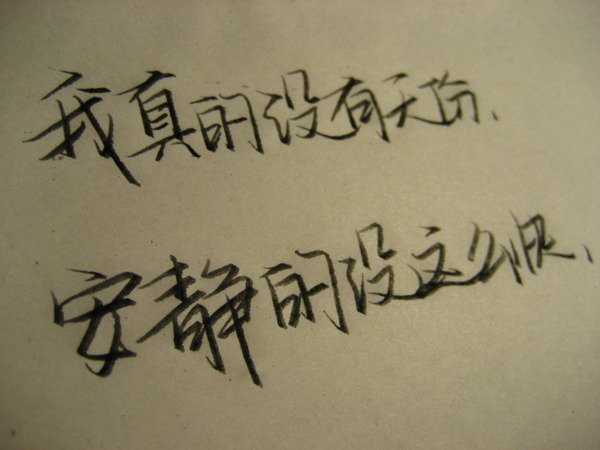 我真的没有天份、
安静的没这么快、